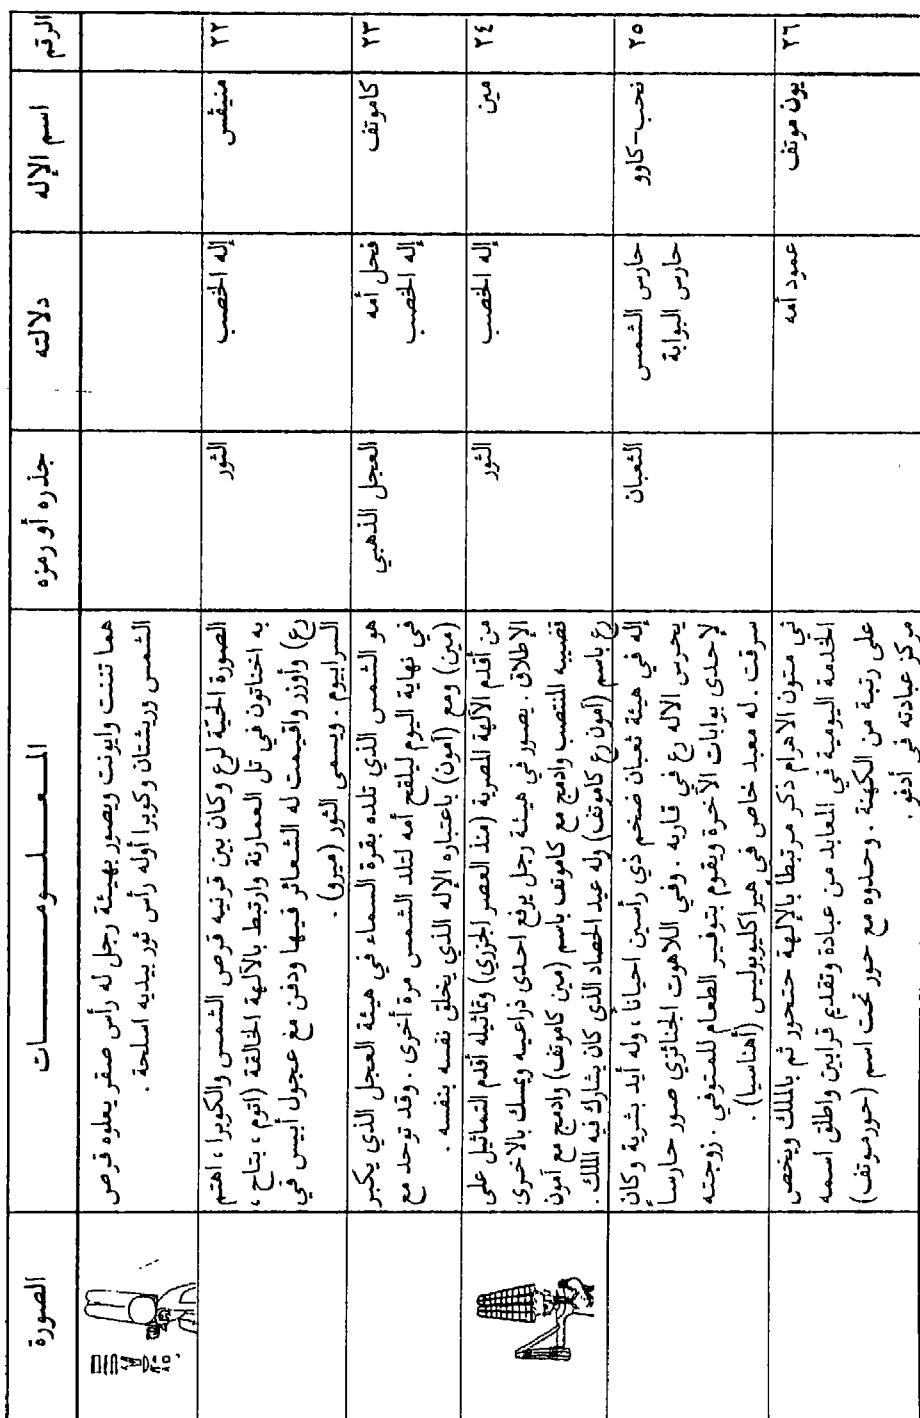 الرقم	اسم الإله	دلالته	جذره أو رمزه	المعلومات	الصورة
هما تننت وايونت ويصور بهيئة رجل له رأس صقر يعلوه قرص
الشمس وريشتان وكوبرا أوله رأس ثور بيديه اسلحة .
٢٢	منيفس	إله الخصب	الثور
الصورة الحية لرع وكان بين قرنيه قرص الشمس والكوبرا ، اهتم
به اخناتون في تل العمارنة وارتبط بالآلهة الخالقة (اتوم ، بتاح ،
رع) وأوزر واقيمت له الشعائر فيها ودفن مع عجول أبيس في
السرابيوم . ويسمى الثور (ميرو) .
٢٣	كاموتف	فحل أمه	العجل الذهبي
إله الخصب
هو الشمس الذي تلده بقرة السماء في هيئة العجل الذي يكبر
في نهاية اليوم ليلقح أمه لتلد الشمس مرة أخرى . وقد توحد مع
(مين) ومع (آمون) باعتباره الإله الذي يخلق نفسه بنفسه .
٢٤	مين	إله الخصب	الثور
من أقدم الآلهة المصرية (منذ العصر الجزري) وتماثيله أقدم التماثيل على
الإطلاق يصور في هيئة رجل يرفع احدى ذراعيه ويمسك بالأخرى
قضيبه المنتصب وادمج مع كاموتف باسم (مين كاموتف) وادمج مع آمون
رع باسم (آمون رع كاموتف) وله عيد الحصاد الذي كان يشارك فيه الملك .
٢٥	نحب-كاوو	حارس الشمس	الثعبان
حارس البوابة
إله في هيئة ثعبان ضخم ذي رأسين احياناً ، وله أيد بشرية وكان
يحرس الاله رع في قاربه . وفي اللاهوت الجنائزي صور حارساً
لإحدى بوابات الآخرة ويقوم بتوفير الطعام للمتوفي . زوجته
سرقت . له معبد خاص في هيراكليوبوليس (أهناسيا) .
٢٦	يون موتف	عمود أمه
في متون الاهرام ذكر مرتبطاً بالإلهة حتحور ثم بالملك ويخص
الخدمة اليومية في المعابد من عبادة وتقديم قرابين واطلق اسمه
على رتبة من الكهنة . وحدوه مع حور تحت اسم (حورموتف)
مركز عبادته في أدفو .